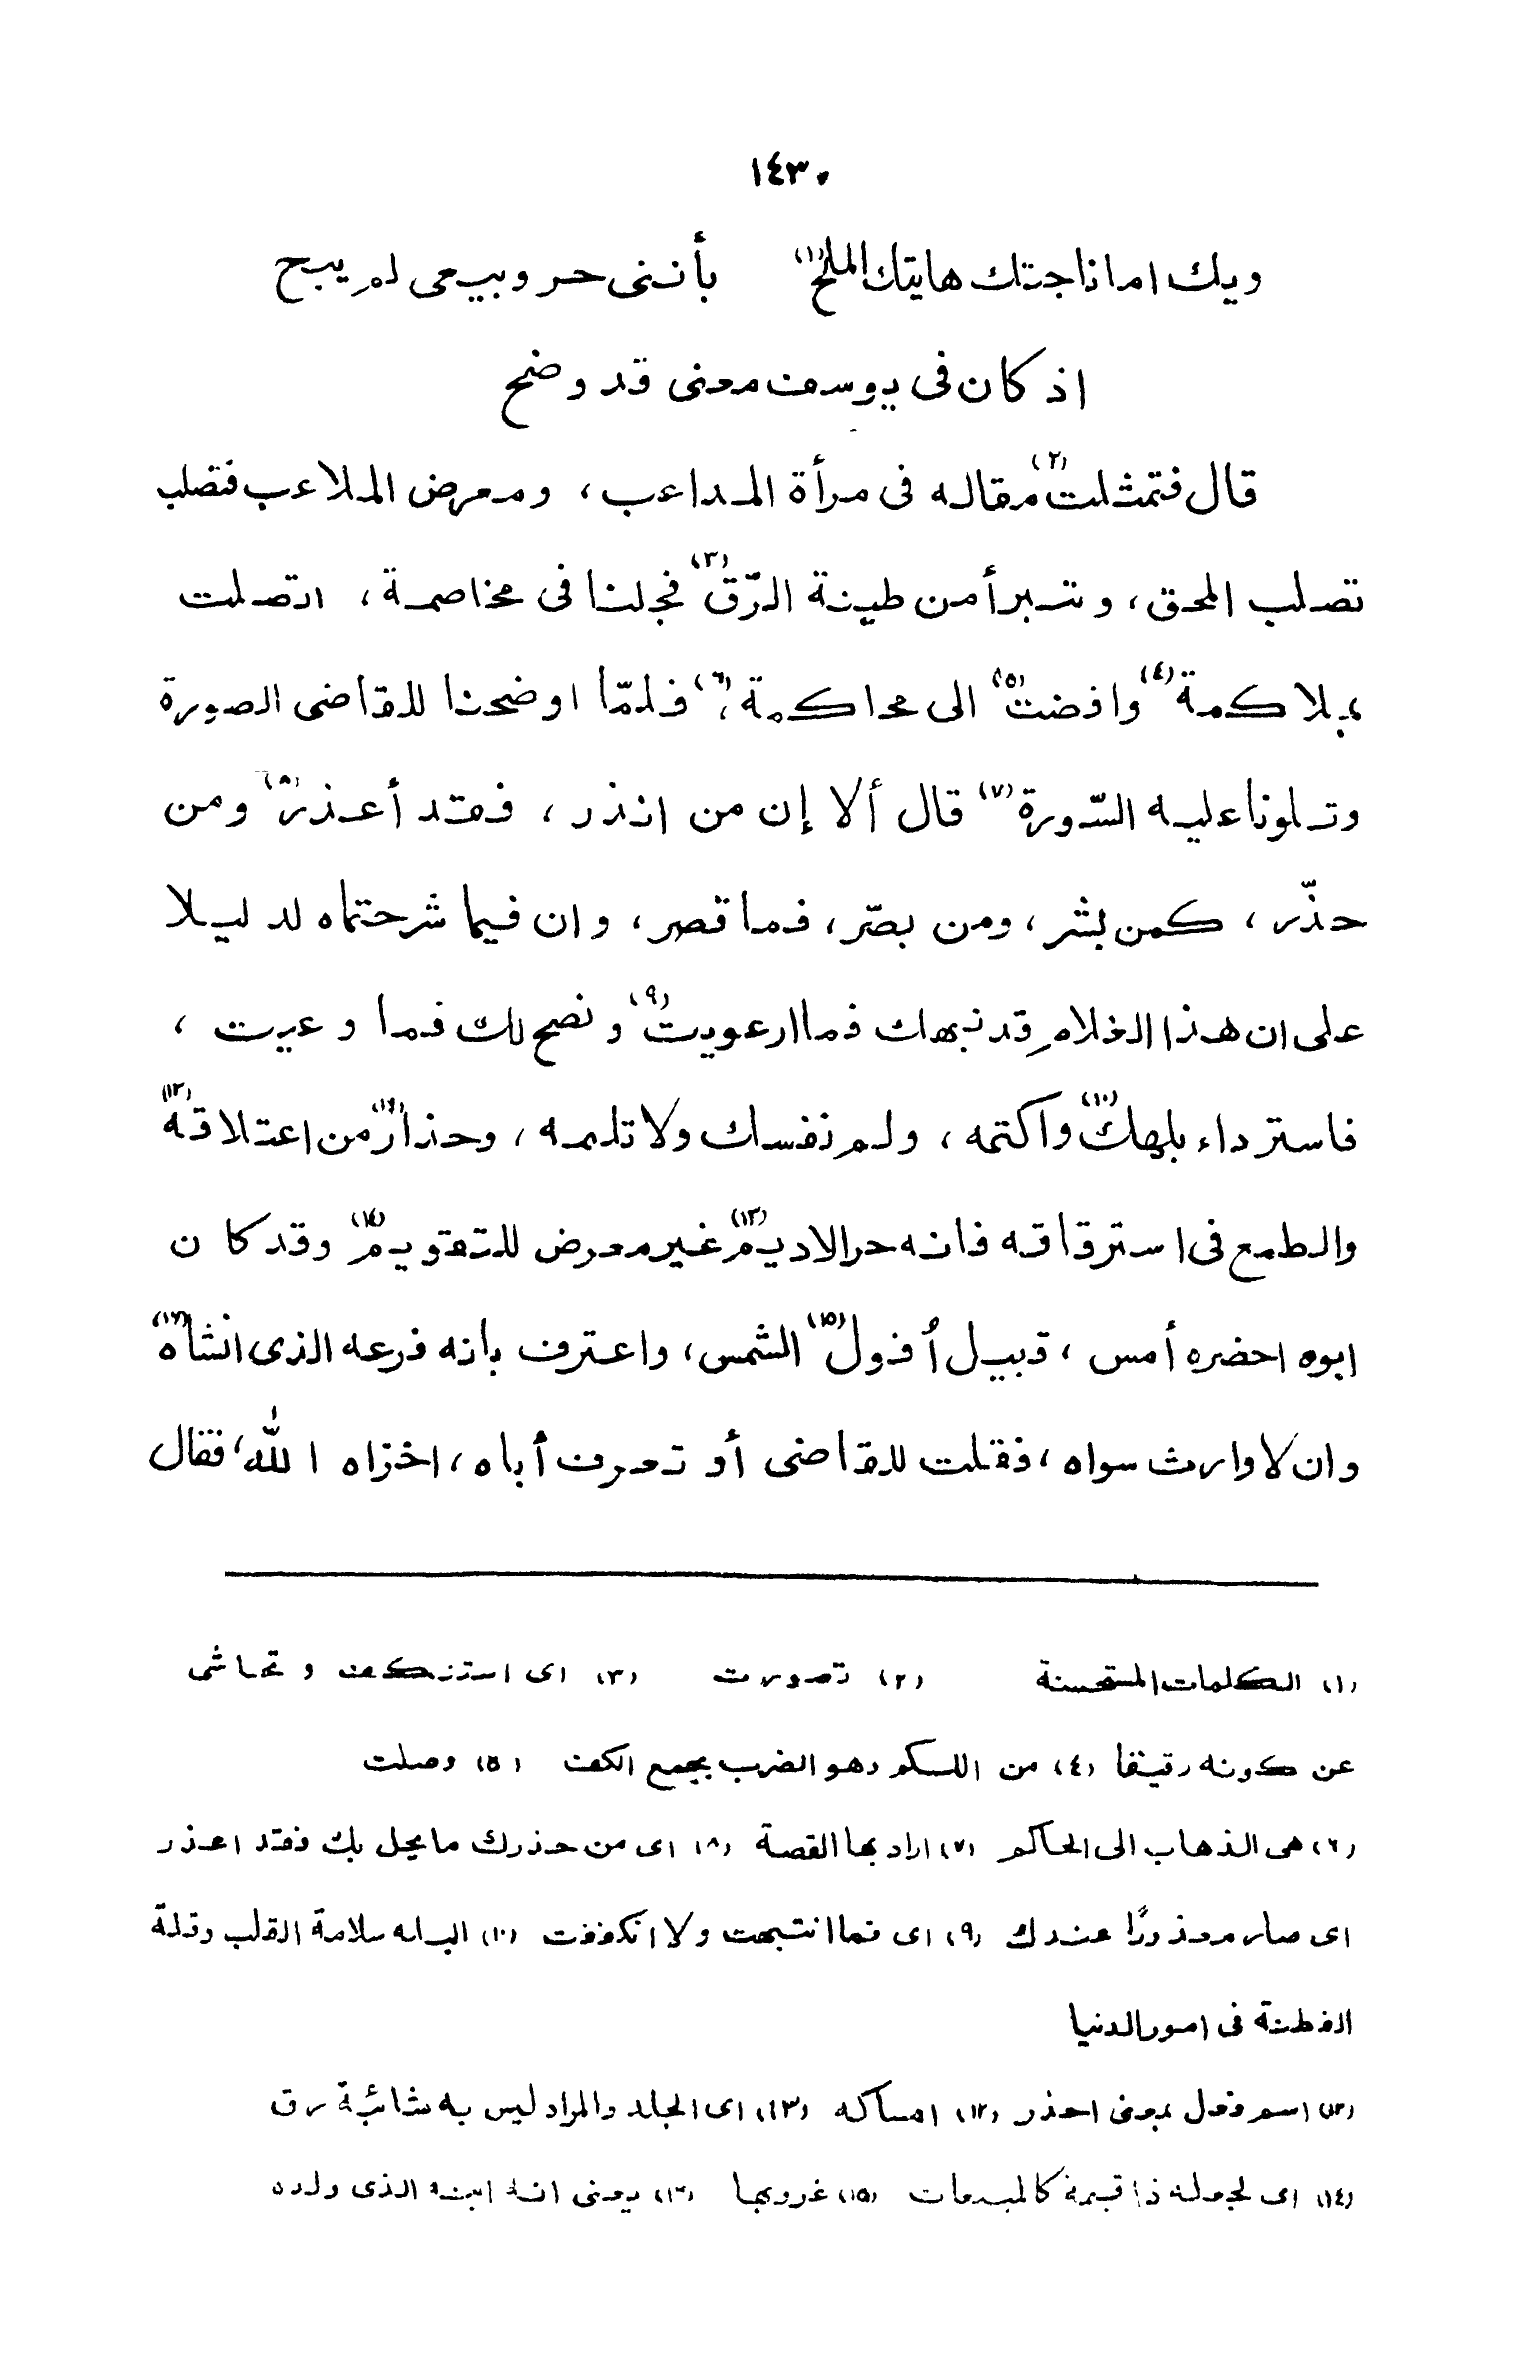 ١٤٣٠
ويك اما ناجتك هاتيك الملح (١) بأننى حر وبيعى لم يبح
اذ كان فى يوسف معنى قد وضح
قال فتمثلت (٢) مقاله فى مرأة المداعب، ومعرض الملاعب فتصلب
تصلب المحق، وتبرأ من طينة الرّق (٣) فجلنا فى مخاصمة، اتصلت
بملاكمة (٤) وافضت (٥) الى محاكمة، (٦) فلمّا اوضحنا للقاضى الصورة
وتلونا عليه السّورة (٧) قال ألا إن من انذر، فقد أعذر (٨) ومن
حذّر، كمن بشر، ومن بصّر، فما قصر، وان فيما شرحتماه لدليلا
على ان هذا الغلام قد نبهك فما ارعويت (٩) ونصح لك فما وعيت،
فاستر داء بلهك (١٠) واكتمه، ولم نفسك ولا تلمه، وحذار (١١) من اعتلاقه (١٢)
والطمع فى استرقاقه فانه حر الاديم (١٣) غير معرض للتقويم (١٤) وقد كان
ابوه احضره أمس، قبيل أفول (١٥) الشمس، واعترف بانه فرعه الذى انشاه (١٦)
وان لا وارث سواه، فقلت للقاضى أو تعرف أباه، اخزاه الله، فقال
(١) الكلمات المستحسنة (٢) تصورت (٣) اى استنكف وتحاشى
عن كونه رقيقا (٤) من اللكم وهو الضرب بجمع الكف (٥) وصلت
(٦) هى الذهاب الى الحاكم (٧) اراد بها القصة (٨) اى من حذرك ما يحل بك فقد اعذر
اى صار معذورًا عندك (٩) اى فما انتبهت ولا انكففت (١٠) البله سلامة القلب وقلة
الفطنة فى امور الدنيا
(١١) اسم فعل بمعنى احذر (١٢) امساكه (١٣) اى الجلد والمراد ليس به شائبة رق
(١٤) اى لجعله ذا قيمة كالمبيعات (١٥) غروبها (١٦) يعنى انه ابنه الذى ولده